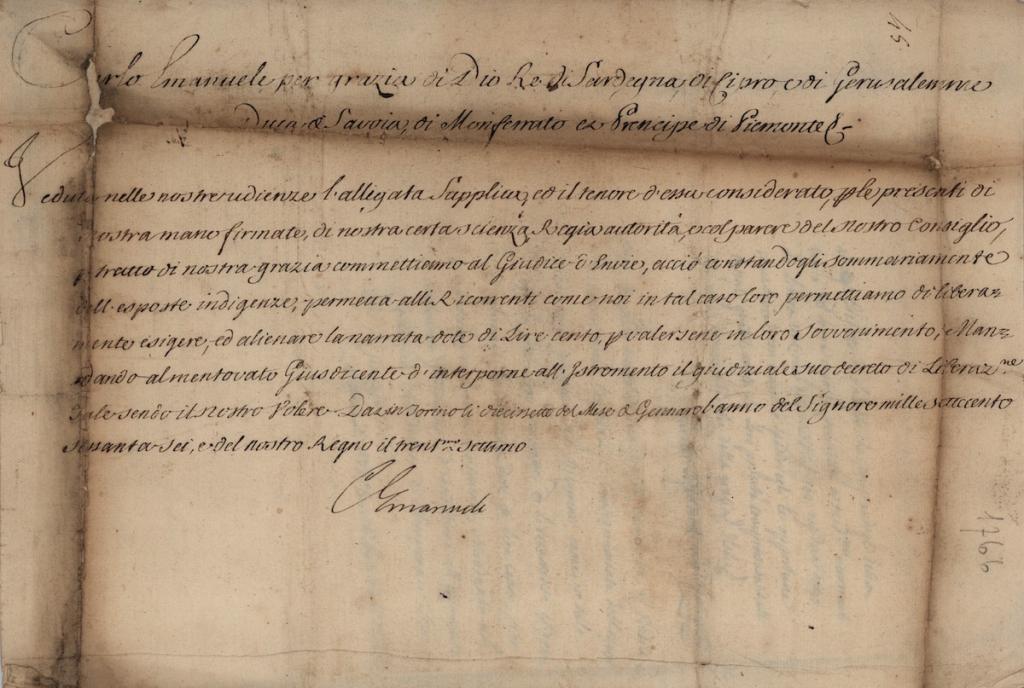 15
Carlo Emanuele per grazia di Dio Re di Sardegna, di Cipro, e di Gerusalemme
Duca di Savoia, di Monferrato et Prencipe di Piemonte &
Veduta nelle nostre udienze l'alligata Supplica, ed il tenore d'essa considerato, ple presenti di
nostra mano firmate, di nostra certa scienza, Regia autorità, e col parere del nostro Consiglio,
tratto di nostra grazia commettiamo al Giudice d'Envie, acciò constandogli sommariamente
dell'esposte indigenze, permetta alli Ricorrenti come noi in tal caso loro permettiamo di libera=
mente esigere, ed alienare la narrata dote di Lire cento, p valersene in loro sovvenimento, Man=
dando al mentovato Giusdicente d'interporne all'Istromento il giudiziale suo decreto di Liberaz.ne
Tale sendo il nostro Volere. Dat in Torino li diecisette del Mese di Gennaro l'anno del Signore mille settecento
sessanta sei, e del nostro Regno il trent.mo settimo.
C Emanuele
1766